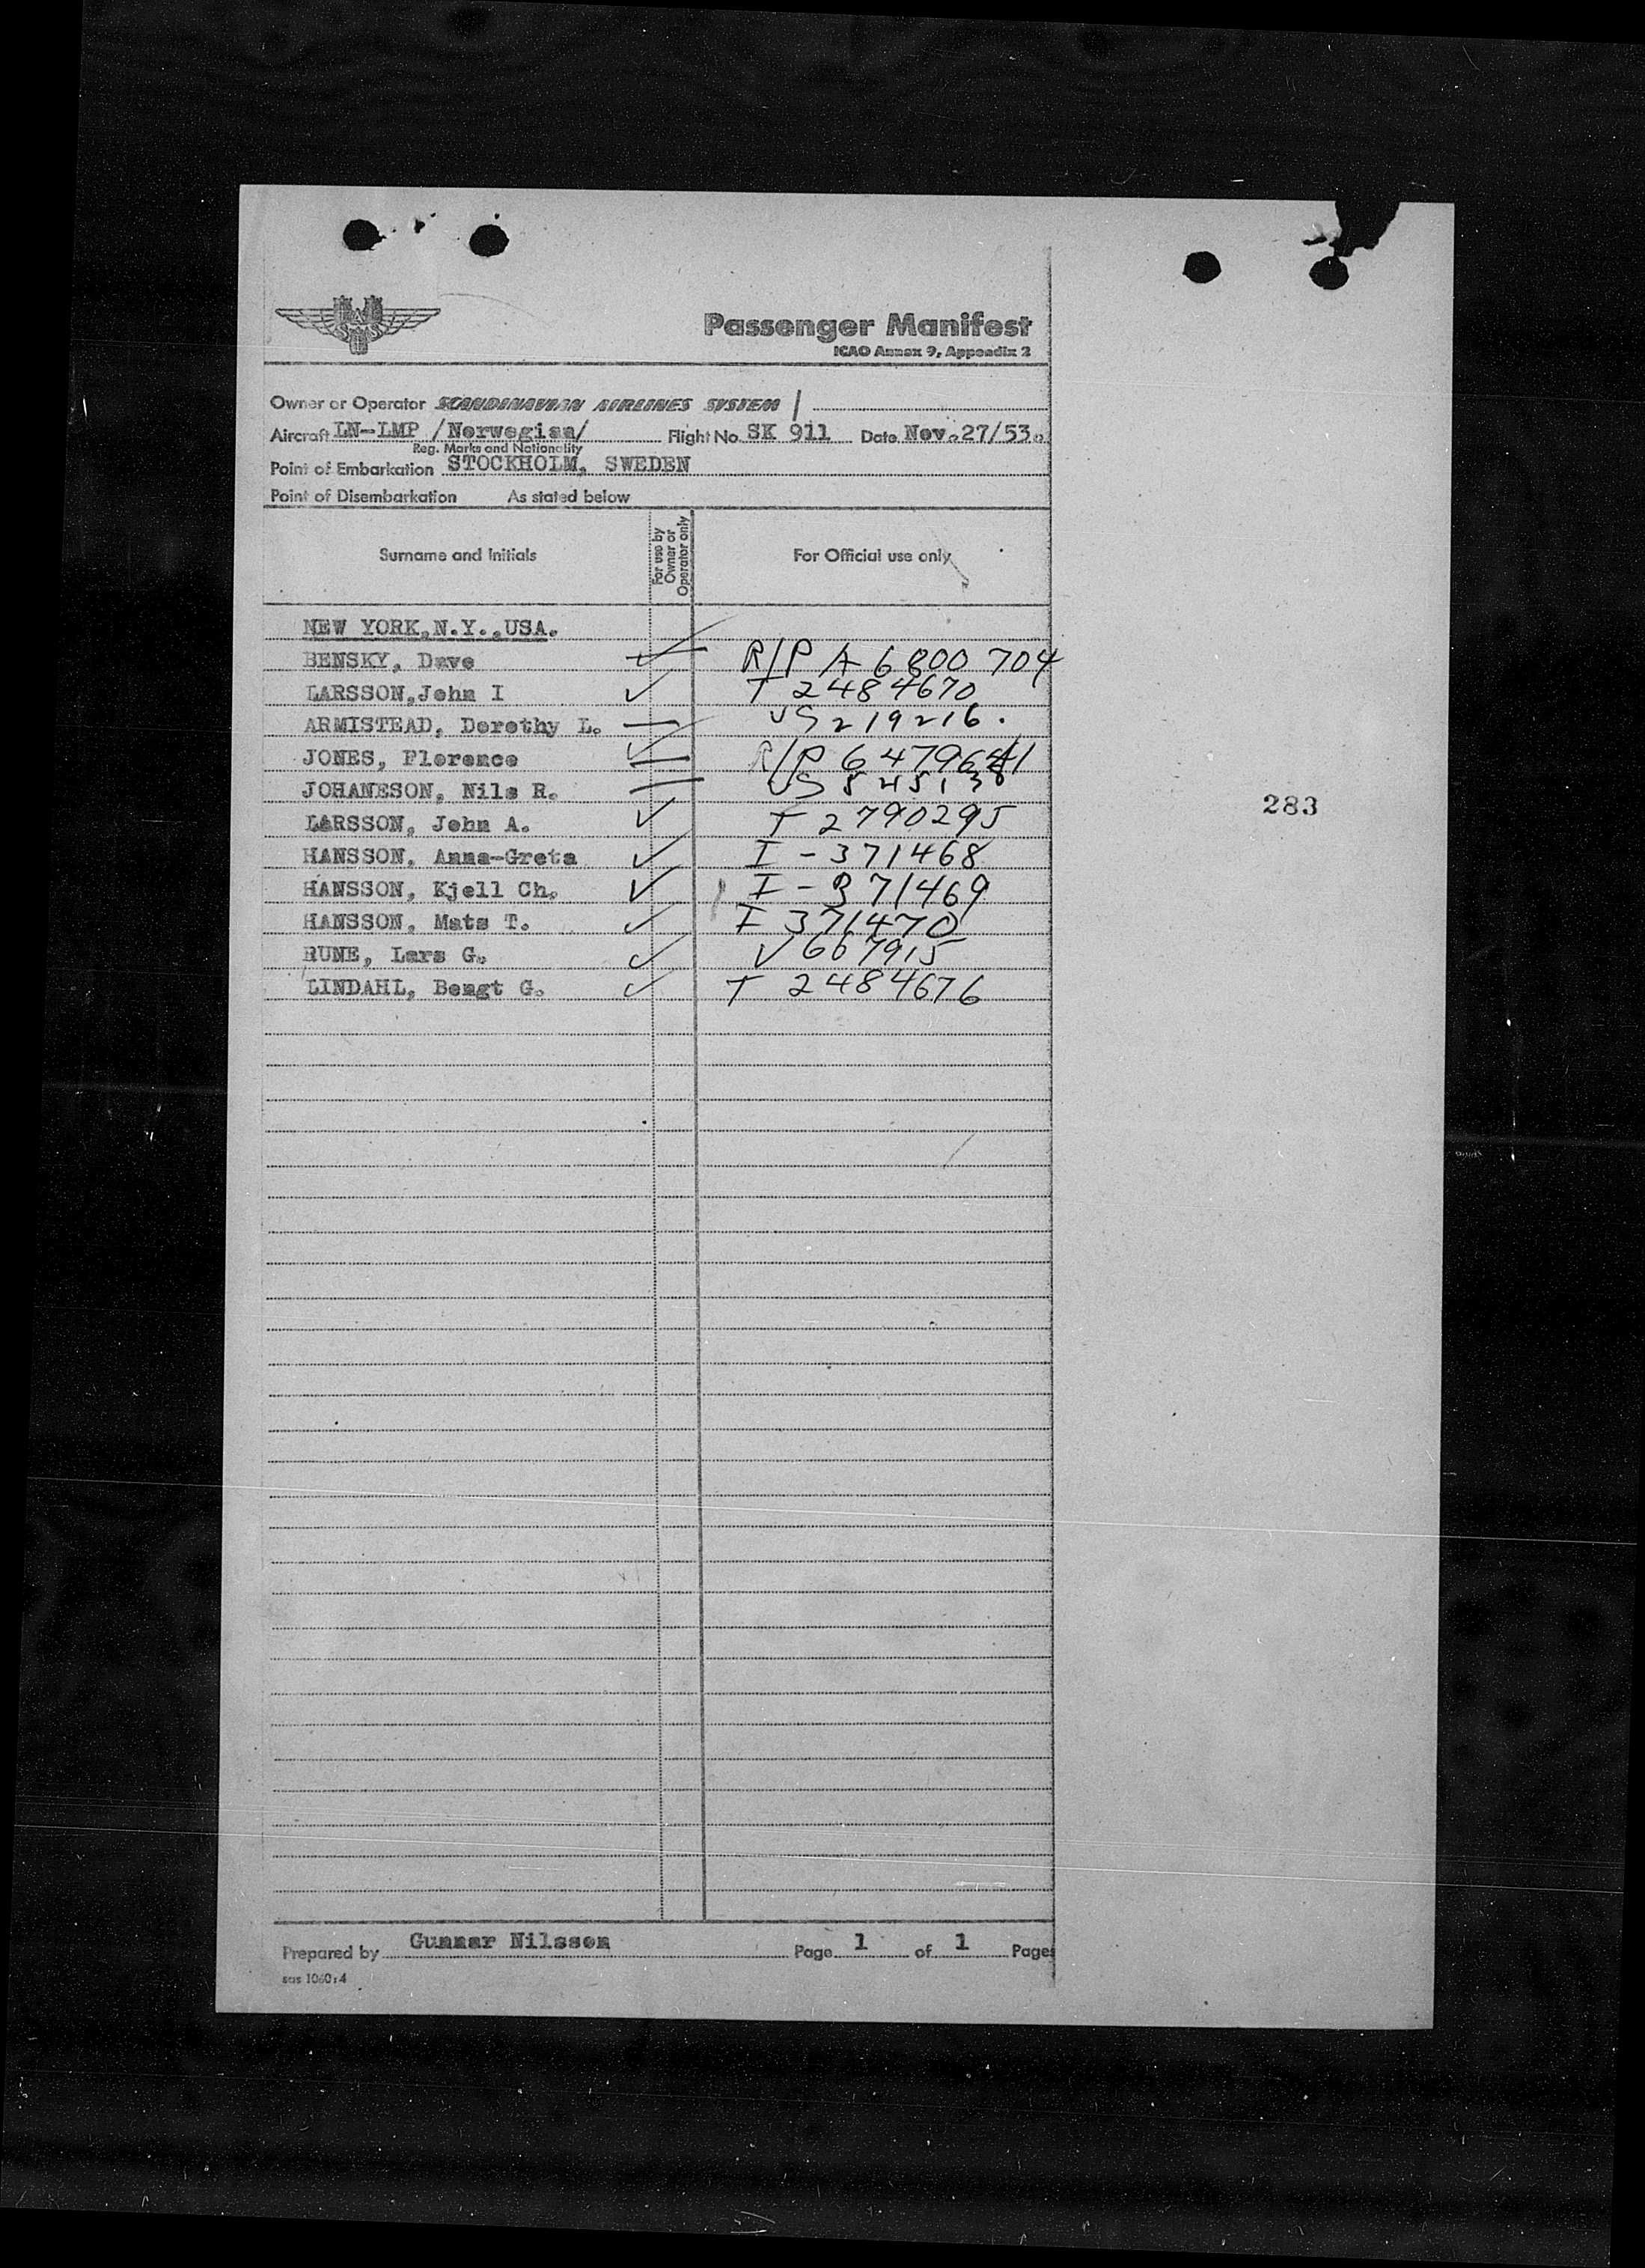 SAS
Passenger Manifest
ICAO Annex 9, Appendix 2
Owner or Operator SCANDINAVIAN AIRLINES SYSTEM
Aircraft LN-LMP /Norwegian/ Flight No. SK 911 Date Nov.27/53.
Reg. Marks and Nationality
Point of Embarkation STOCKHOLM, SWEDEN
Point of Disembarkation As stated below
Surname and Initials For use by Owner or Operator only For Official use only
NEW YORK,N.Y.,USA.
BENSKY, Dave R/P A 6800 704
LARSSON,John I T 2484670
ARMISTEAD, Dorothy L. US 219216.
JONES, Florence R/P
JOHANESON, Nils R. US
LARSSON, John A. T 2790295
283
HANSSON, Anna-Greta I - 371468
HANSSON, Kjell Ch. I - 371469
HANSSON, Mats T. I 371470
RUNE, Lars G. V 667915
LINDAHL, Bengt G. T 2484676
Prepared by Gunnar Nilsson Page 1 of 1 Pages
sas 1060:4